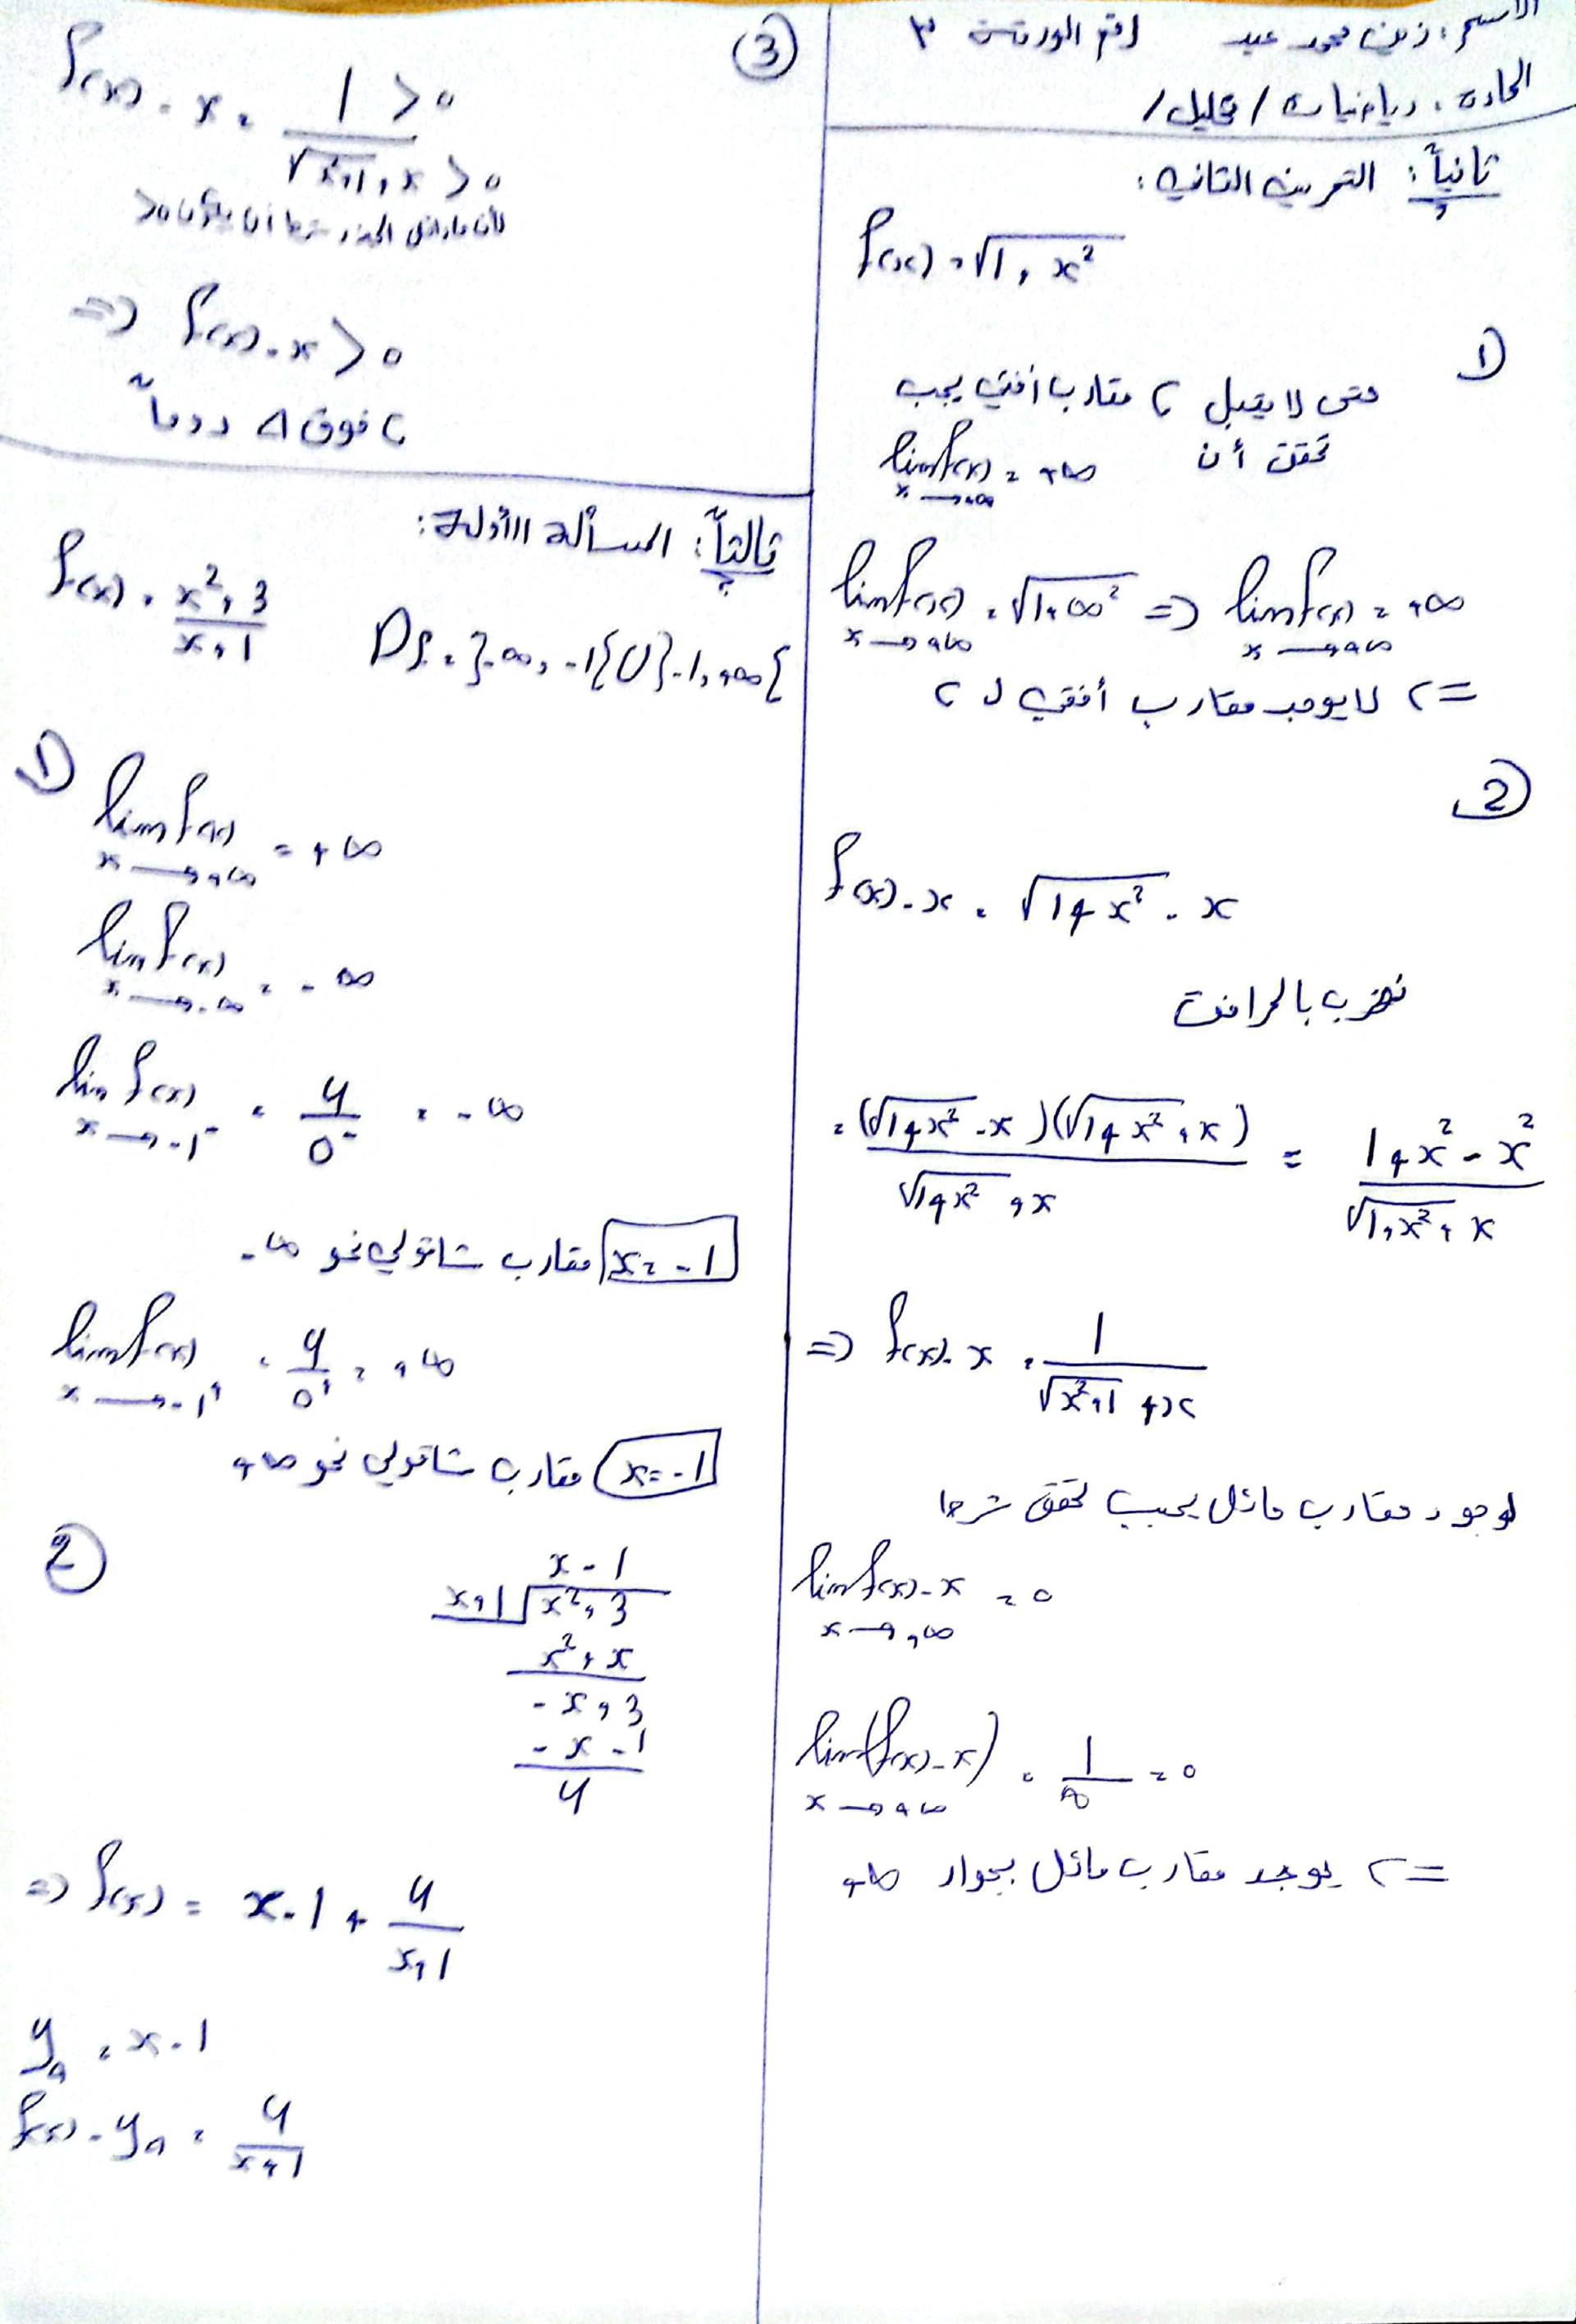 الاسم: زين محمد عيد رقم الورقة ٣
المادة: رياضيات / تحليل /
ثانياً: التمرين الثاني:
f(x) = √(1+x²)
1)
حتى لا يقبل C مقارب أفقي يجب
تحقق أن lim f(x) = +∞
x→+∞
lim f(x) = √(1+∞²) => lim f(x) = +∞
x→+∞ x→+∞
=> لا يوجد مقارب أفقي لـ C
2)
f(x) - x = √(1+x²) - x
نضرب بالمرافق
= (√(1+x²) - x)(√(1+x²) + x) / (√(1+x²) + x) = (1+x²-x²) / (√(1+x²) + x)
=> f(x) - x = 1 / (√(x²+1) + x)
لوجود مقارب مائل يجب تحقق شرط
lim f(x) - x = 0
x→+∞
lim (f(x) - x) = 1/∞ = 0
x→+∞
=> يوجد مقارب مائل بجوار +∞
3)
f(x) - x = 1 > 0 / √(x²+1) + x > 0
لأن ما داخل الجذر شرط أن يكون >0
=> f(x) - x > 0
C فوق Δ دوماً
ثالثاً: المسألة الأولى:
f(x) = (x²+3)/(x+1)
Df = }-∞, -1{ U }-1, +∞{
1)
lim f(x) = +∞
x→+∞
lim f(x) = -∞
x→-∞
lim f(x) = 4/0⁻ = -∞
x→-1⁻
x = -1 مقارب شاقولي نحو -∞
lim f(x) = 4/0⁺ = +∞
x→-1⁺
x = -1 مقارب شاقولي نحو +∞
2)
x - 1
x+1 √ x²+3
x² + x
- x + 3
- x - 1
4
=> f(x) = x - 1 + 4/(x+1)
y_Δ = x - 1
f(x) - y_Δ = 4/(x+1)